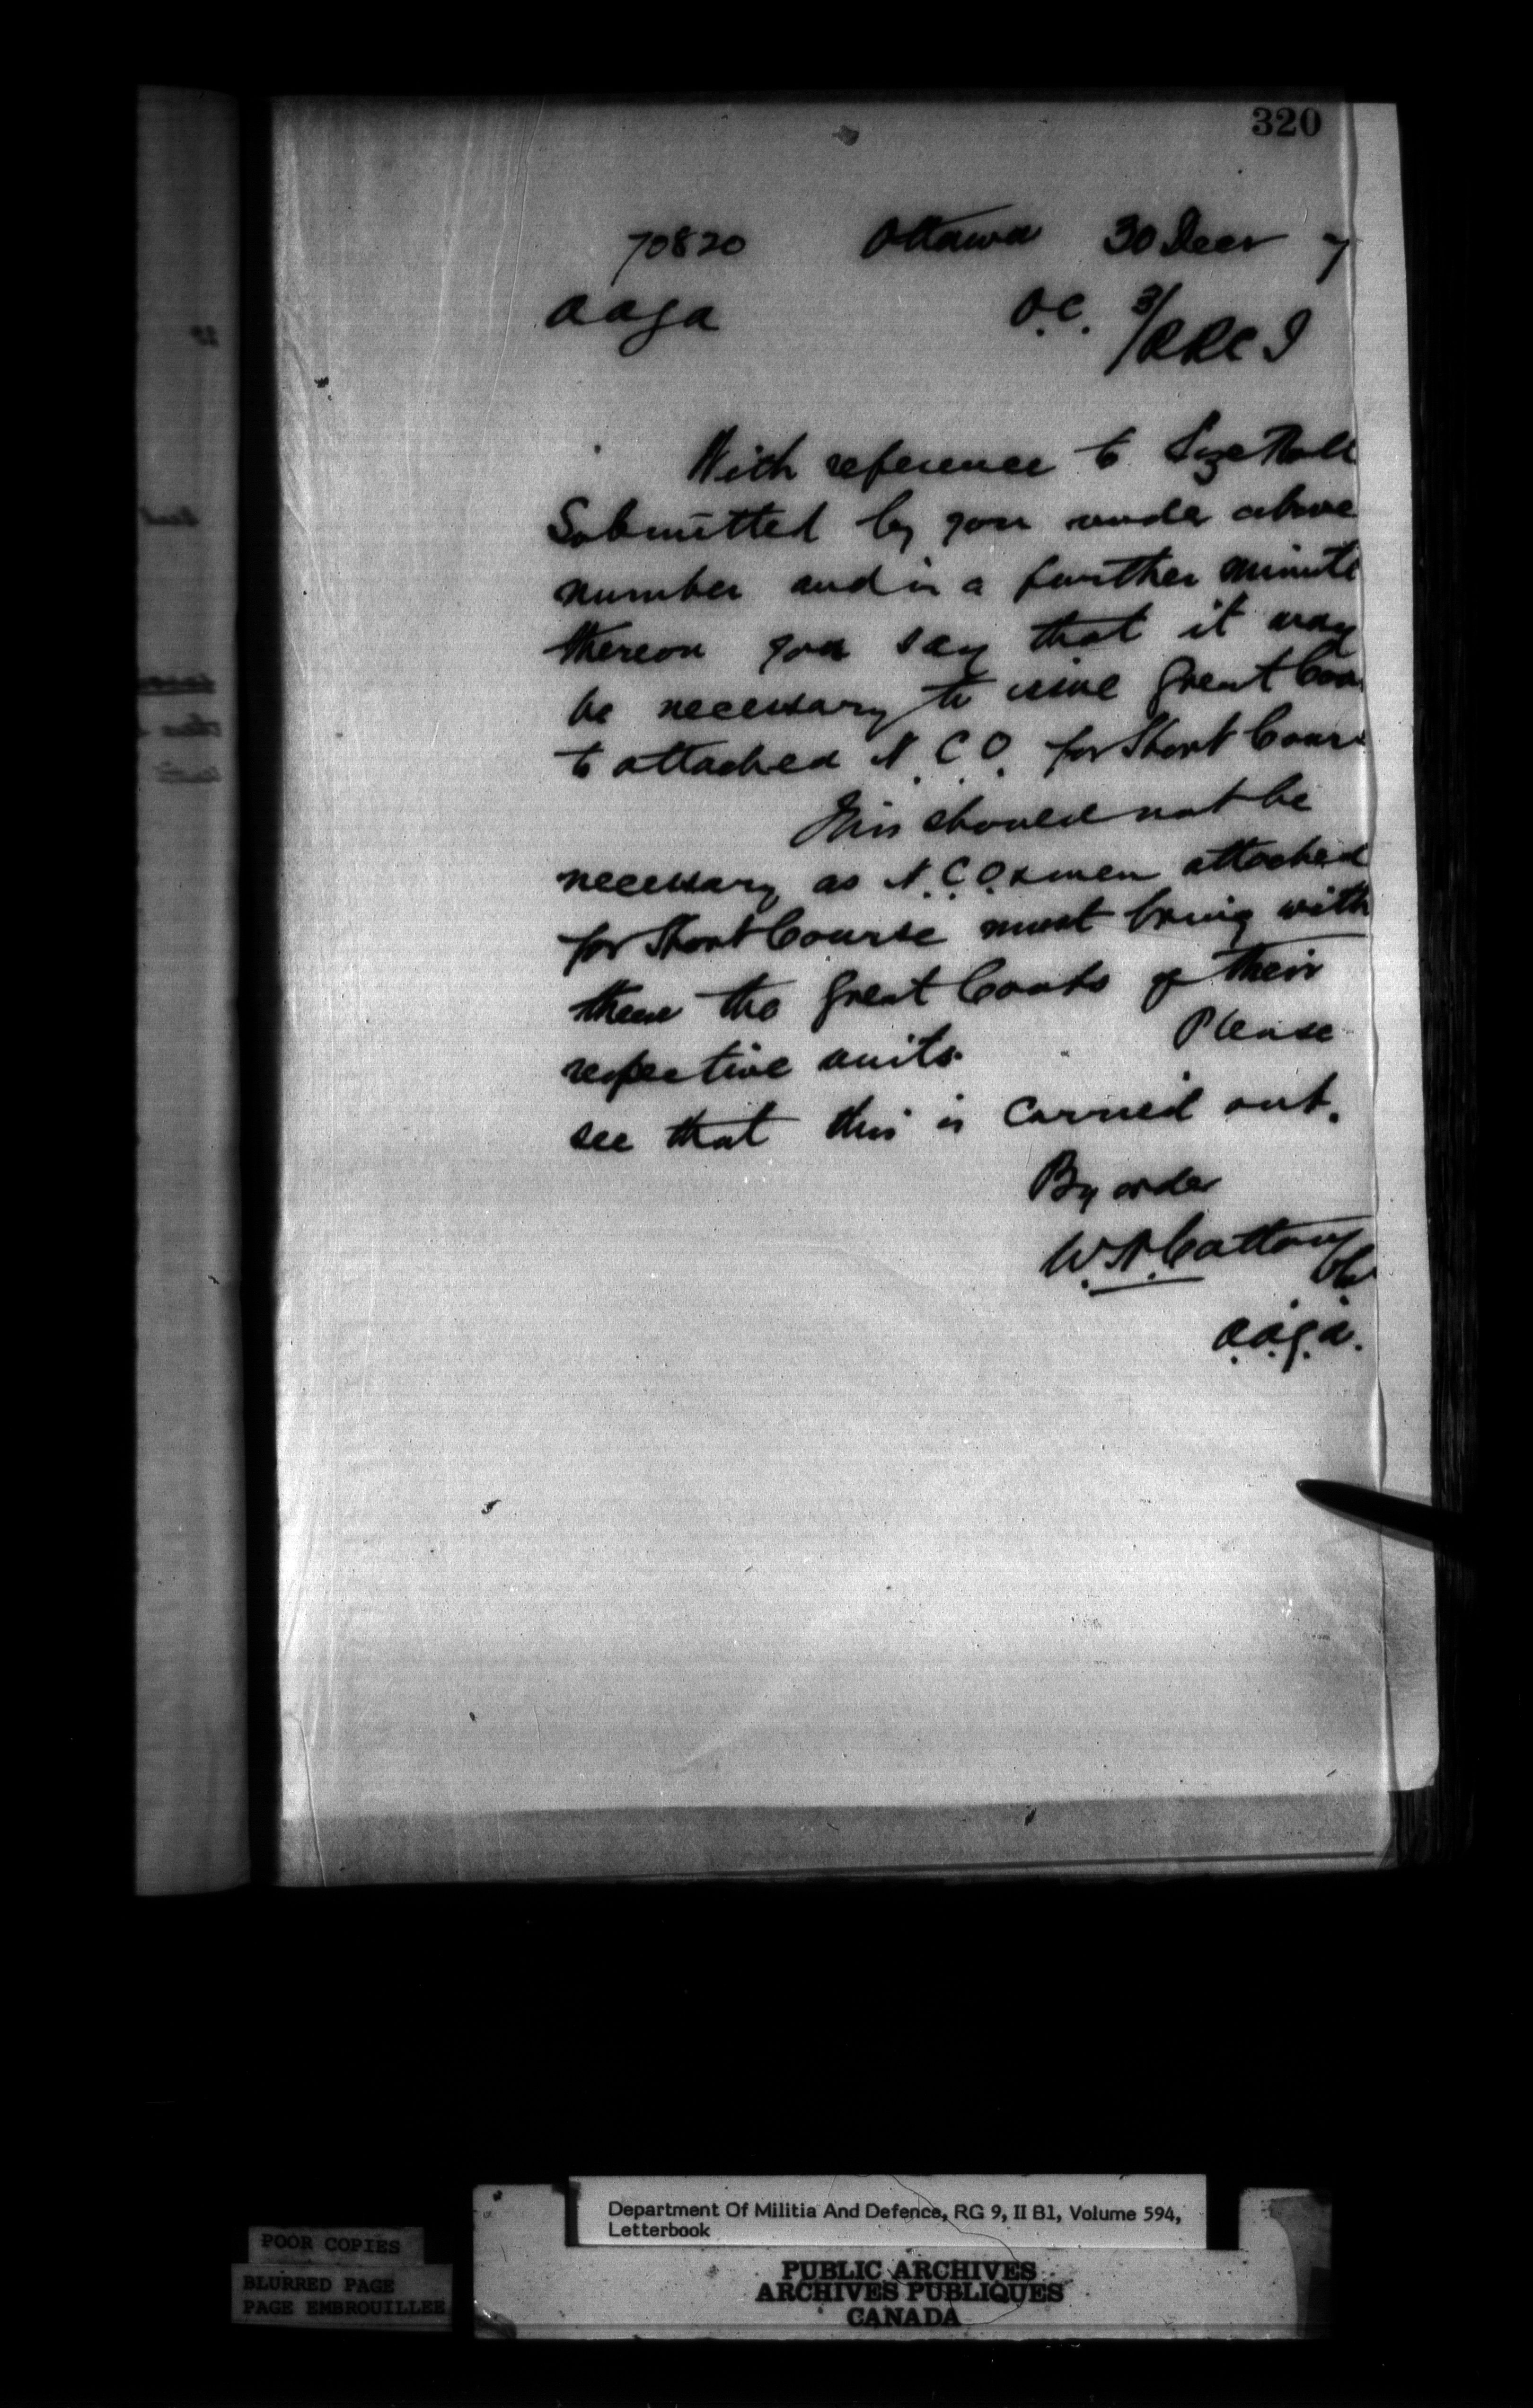 320
70820 Ottawa 30 Decr 7
a a g a O.C. 3/RRCI
With reference to Size Roll
Submitted by you under above
number and in a further minute
thereon you say that it may
be necessary to issue Great Coa
to attached N.C.O. for Short Cours
This should not be
necessary as N.C.O. & men attached
for Short Course must bring with
them the Great Coats of their
respective units. Please
see that this is carried out.
By order
a.a.g.a.
Department Of Militia And Defence, RG 9, II B1, Volume 594,
Letterbook
POOR COPIES
BLURRED PAGE
PAGE EMBROUILLEE
PUBLIC ARCHIVES
ARCHIVES PUBLIQUES
CANADA